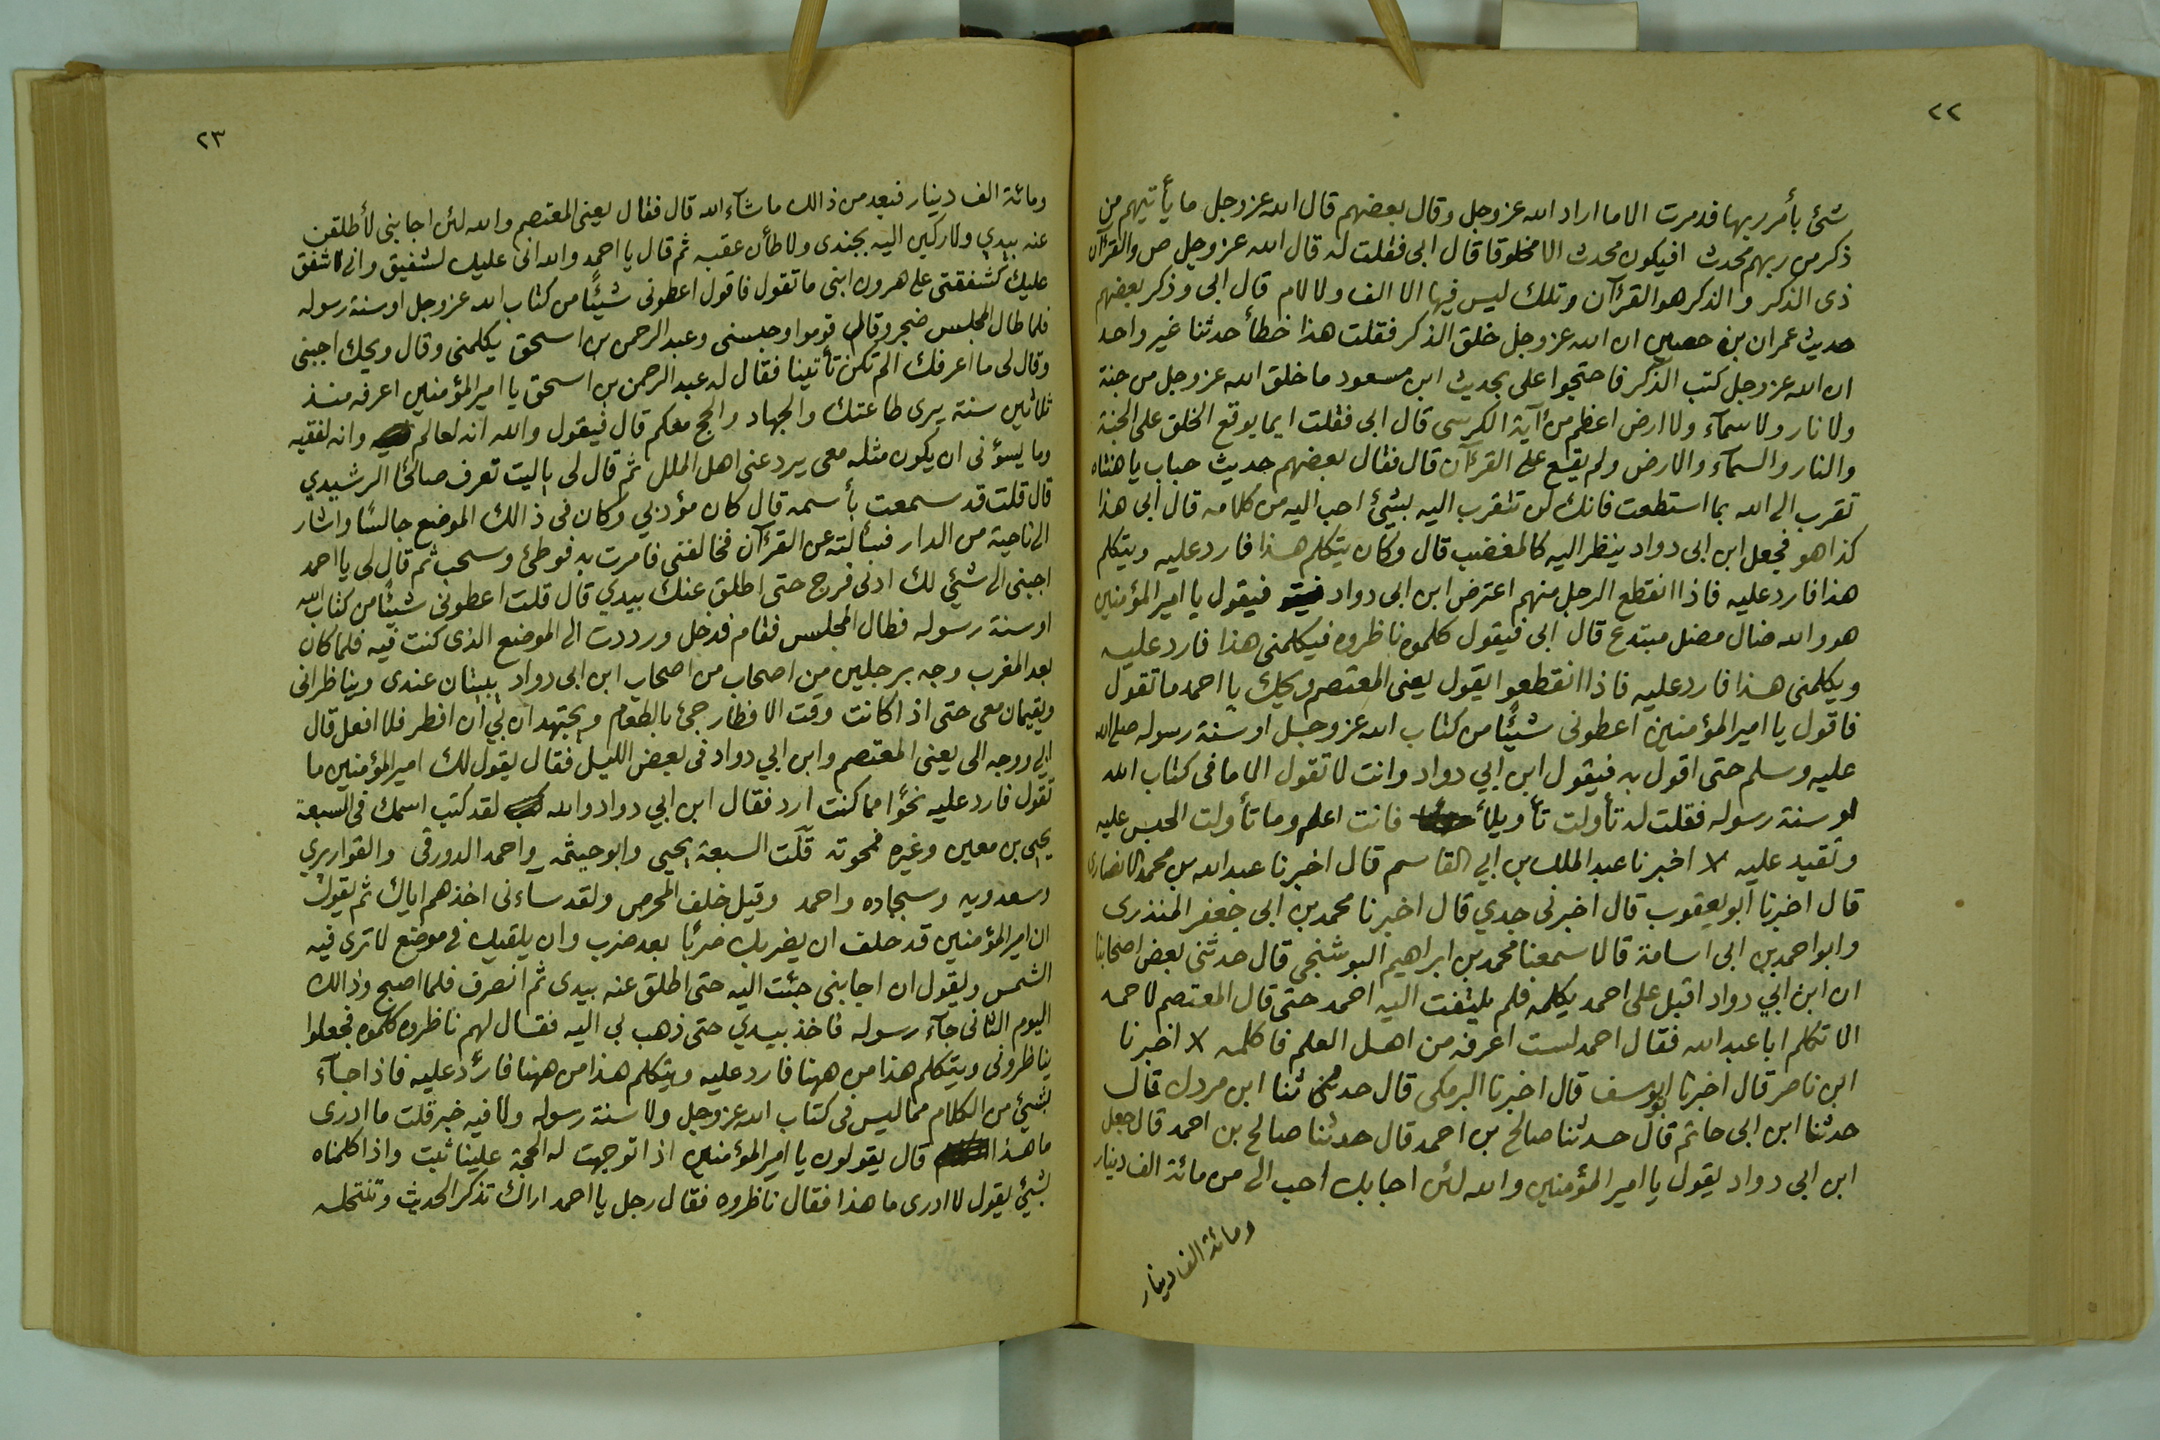 ٢٢
شئ بأمر ربها فدمرت الا ما اراد الله عز وجل وقال بعضهم قال الله عز وجل ما يأتيهم من
ذكر من ربهم محدث افيكون محدث الا مخلوقا قال ابى فقلت له قال الله عز وجل ص والقرآن
ذى الذكر والذكر هو القرآن وتلك ليس فيها الا الف ولا لام قال ابى وذكر بعضهم
حديث عمران بن حصين ان الله عز وجل خلق الذكر فقلت هذا خطأ حدثنا غير واحد
ان الله عز وجل كتب الذكر فاحتجوا على بحديث ابن مسعود ما خلق الله عز وجل من جنة
ولا نار ولا سمآء ولا ارض اعظم من آية الكرسى قال ابى فقلت ايما يوقع الخلق على الجنة
والنار والسمآء والارض ولم يقع على القرآن قال فقال بعضهم حديث حباب يا هنتاه
تقرب الى الله بما استطعت فانك لن تتقرب اليه بشئ احب اليه من كلامه قال ابى هذا
كذا هو فجعل ابن ابى دواد ينظر اليه كالمغضب قال وكان يتكلم هذا فارد عليه ويتكلم
هذا فارد عليه فاذا انقطع الرجل منهم اعترض ابن ابى دواد فيقول يا امير المؤمنين
هو والله ضال مضل مبتدع قال ابى فيقول كلموه ناظروه فيكلمنى هذا فارد عليه
ويكلمنى هذا فارد عليه فاذا انقطعوا يقول يعنى المعتصم ويحك يا احمد ما تقول
فاقول يا امير المؤمنين اعطونى شيئا من كتاب الله عز وجل او سنة رسوله صلى الله
عليه وسلم حتى اقول به فيقول ابن ابي دواد وانت لا تقول الا ما فى كتاب الله
او سنة رسوله فقلت له تأولت تأويلا فانت اعلم وما تأولت الحبس عليه
وتقيد عليه اخبرنا عبد الملك بن ابي القاسم قال اخبرنا عبد الله بن محمد الانصارى
قال اخبرنا ابو يعقوب قال اخبرنى جدي قال اخبرنا محمد بن ابى جعفر المنذرى
وابو احمد بن ابى اسامة قالا سمعنا محمد بن ابراهيم البوشنجى قال حدثنى بعض اصحابنا
ان ابن ابي دواد اقبل على احمد يكلمه فلم يلتفت اليه احمد حتى قال المعتصم لاحمد
الا تكلم ابا عبد الله فقال احمد لست اعرفه من اهل العلم فاكلمه اخبرنا
ابن ناصر قال اخبرنا ابو يوسف قال اخبرنا البرمكى قال ثنا ابن مردك قال
حدثنا ابن ابى حاتم قال حدثنا صالح بن احمد قال حدثنا صالح بن احمد قال جعل
ابن ابى دواد يقول يا امير المؤمنين والله لئن اجابك احب الى من مائة الف دينار
ومائة الف دينار
٢٣
ومائة الف دينار فيعد من ذالك ما شآء الله قال فقال يعنى المعتصم والله لئن اجابنى لأطلقن
عنه بيدي ولاركبن اليه بجندى ولاطأن عقبه ثم قال يا احمد والله انى عليك لشفيق وانى لاشفق
عليك كشفقتى على هرون ابنى ما تقول فاقول اعطونى شيئا من كتاب الله عز وجل او سنة رسوله
فلما طال المجلس ضجر وقال قوموا وحبسنى وعبد الرحمن بن اسحق يكلمنى وقال ويحك اجبنى
وقال لى ما اعرفك الم تكن تأتينا فقال له عبد الرحمن بن اسحق يا امير المؤمنين اعرفه منذ
ثلاثين سنة يرى طاعتك والجهاد والحج معكم قال فيقول والله انه لعالم وانه لفقيه
وما يسؤنى ان يكون مثله معى يرد عنى اهل الملل ثم قال لى ياليت تعرف صالحا الرشيدي
قال قلت قد سمعت بأسمه قال كان مؤدبي وكان فى ذالك الموضع جالسا واشار
الى ناحية من الدار فسألته عن القرآن فخالفنى فامرت به فوطئ وسحب ثم قال لى يا احمد
اجبنى الى شئي لك ادنى فرج حتى اطلق عنك بيدي قال قلت اعطونى شيئا من كتاب الله
او سنة رسوله فطال المجلس فقام فدخل ورددت الى الموضع الذى كنت فيه فلما كان
بعد المغرب وجه برجلين من اصحاب من اصحاب ابن ابى دواد يبيتان عندى ويناظرانى
ويقيمان معى حتى اذا كانت وقت الافطار جئ بالطعام ويجتهدان بي ان افطر فلا افعل قال
ابي ووجه الى يعنى المعتصم وابن ابي دواد فى بعض الليل فقال يقول لك امير المؤمنين ما
تقول فارد عليه نحوا مما كنت ارد فقال ابن ابي دواد والله لقد كتب اسمك فى السبعة
يحيى بن معين وغيره فمحوته قلت السبعة يحيى وابو خيثمه واحمد الدورقى والقواريري
وسعدويه وسجاده واحمد وقيل خلف المخرمى ولقد ساءنى اخذهم اياك ثم يقول
ان امير المؤمنين قد حلف ان يضربك ضربا بعد ضرب وان يلقيك فى موضع لا ترى فيه
الشمس ويقول ان اجابنى جئت اليه حتى اطلق عنه بيدى ثم انصرف فلما اصبح وذالك
اليوم الثانى جآء رسوله فاخذ بيدي حتى ذهب بى اليه فقال لهم ناظروه كلموه فجعلوا
يناظرونى ويتكلم هذا من ههنا فارد عليه ويتكلم هذا من ههنا فارد عليه فاذا جآء
بشئ من الكلام مما ليس فى كتاب الله عز وجل ولا سنة رسوله ولا فيه خبر قلت ما ادرى
ما هذا قال يقولون يا امير المؤمنين اذا توجهت له الحجة علينا ثبت واذا كلمناه
بشئ يقول لا ادرى ما هذا فقال ناظروه فقال رجل يا احمد اراك تذكر الحديث وتنتحله